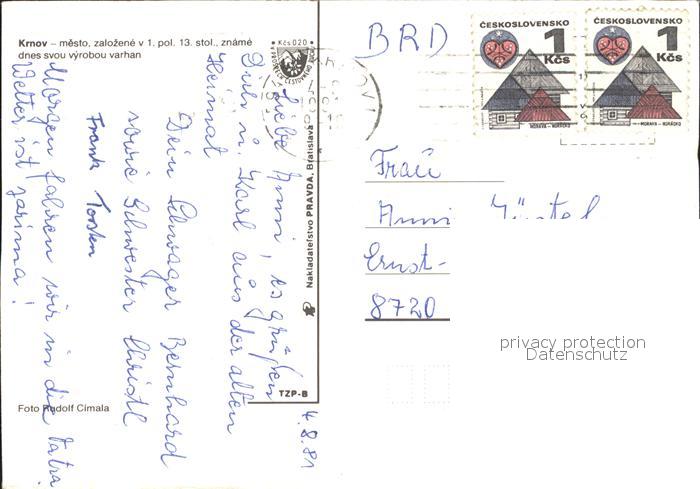 Krnov – město, založené v 1. pol. 13. stol., známé
dnes svou výrobou varhan
Kčs 0 20
Liebe Anni, es grüßen
Dich u. Karl aus der alten
Heimat
Dein Schwager Bernhard
sowie Schwester Christl
Frank Torsten
Morgen fahren wir in die Tatra.
Wetter ist prima!
4.8.81
Foto Rudolf Címala
Nakladateľstvo PRAVDA, Bratislava
TZP-B
BRD
ČESKOSLOVENSKO
1
Kčs
MORAVA - HORÁCKO
ČESKOSLOVENSKO
1
Kčs
MORAVA - HORÁCKO
Frau
Anni
Ernst-
8720
privacy protection
Datenschutz